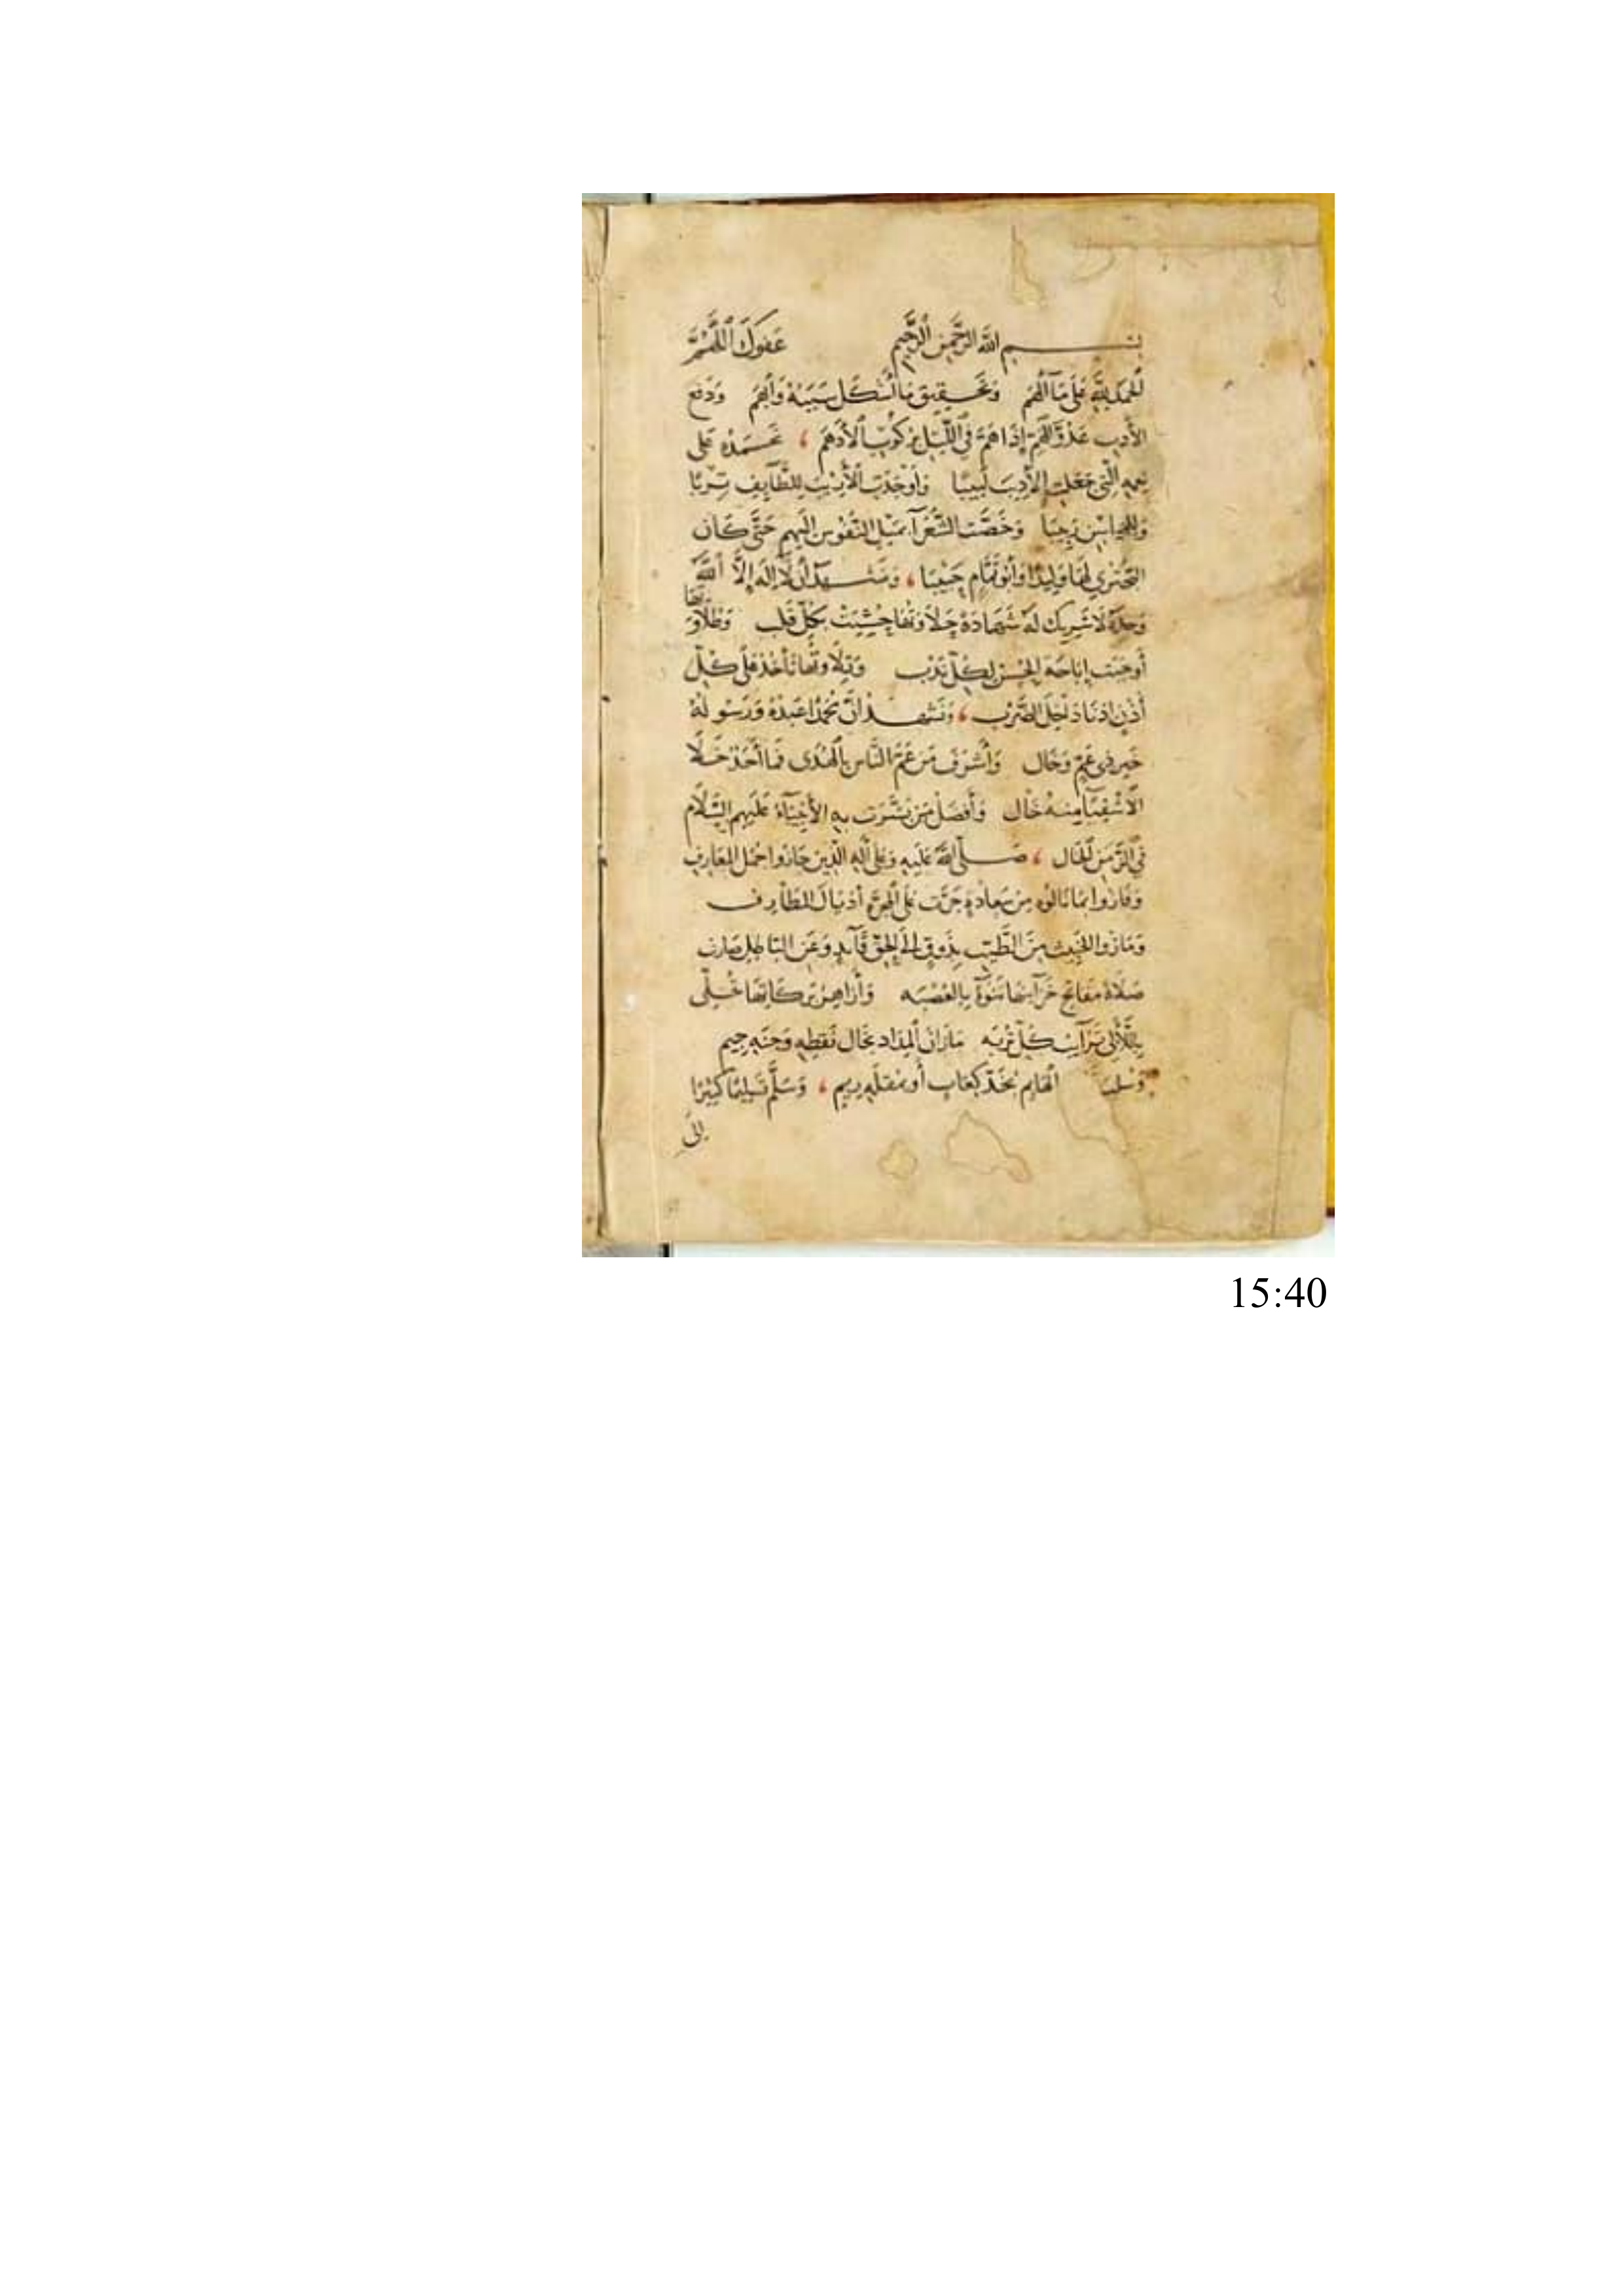 بسم الله الرحمن الرحيم عفوك اللهم
الحمد لله على ما ألهم وتحقيق ما أشكل سببه وأبهم ودفع
الأدب عدو الهم إذا هم في الليل بركوب الأدهم ، نحمده على
نعمه التي جعلت الأدب لبيبا وأوجدت الأريب للطايف تربا
وللمحاسن وخصت الشعرآ بميل النفوس إليهم حتى كان
البحتري لها وليدا وأبو تمام حبيبا ، ونشهد أن لا إله إلا الله
وحده لا شريك له شهادة حلاوتها حشيت بكل قلب وطلاوتها
أوجبت إباحة الحسن لكل ندب وتلاوتها تأخذ على كل
أذن اذنا داخل الضرب ، ونشهد ان محمدا عبده ورسوله
خير في عم وخال وأشرف من عم الناس بالهدى فما أحد خلا
الأشقيا منه خال وأفضل من بشرت به الأنبياء عليهم السلام
في الزمن الخال ، صلى الله عليه وعلى آله الذين حازوا جمل المعارف
وفازوا بما نالوه من سعادة جرت على المجرة أذيال المطارف
ومازوا الخبيث من الطيب بذوق إلى الحق قآيد وعن الباطل صارف
صلاة مفاتح خزآينها تنوآ بالعصبه وأزاهر بركاتها تحلى
باللآلي ترآيب كل تربه ما زان المداد بخال نقطه وجنه جيم
الهايم بخد كعاب أو بمقلة ريم ، وسلم تسليما كثيرا
إلى
15:40